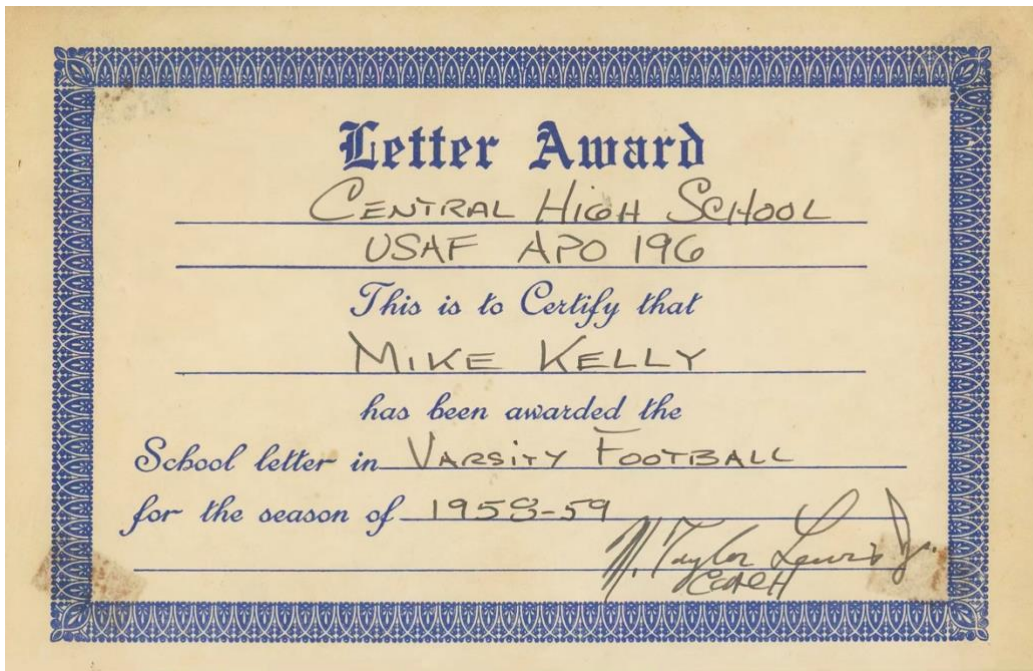 Letter Award
CENTRAL HIGH SCHOOL
USAF APO 196
This is to Certify that
MIKE KELLY
has been awarded the
School letter in VARSITY FOOTBALL
for the season of 1958-59
N. Taylor Lewis Jr.
COACH